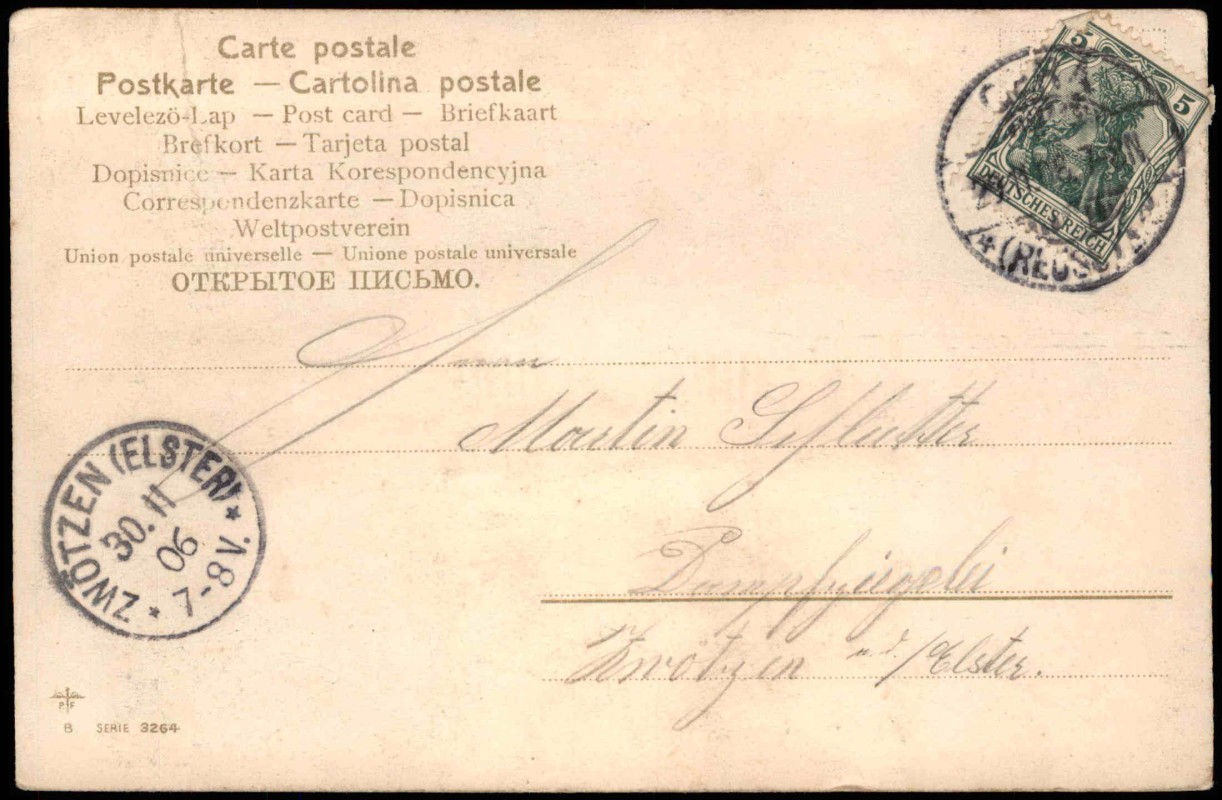 Carte postale
Postkarte — Cartolina postale
Levelezö-Lap — Post card — Briefkaart
Brefkort — Tarjeta postal
Dopisnice — Karta Korespondencyjna
Correspondenzkarte — Dopisnica
Weltpostverein
Union postale universelle — Unione postale universale
ОТКРЫТОЕ ПИСЬМО.
5
5
DEUTSCHES REICH
Herrn
Martin
Dampfziegelei
Zwötzen a.d./Elster.
ZWÖTZEN (ELSTER)
30. 11
06
7-8 V.
P F
B SERIE 3264